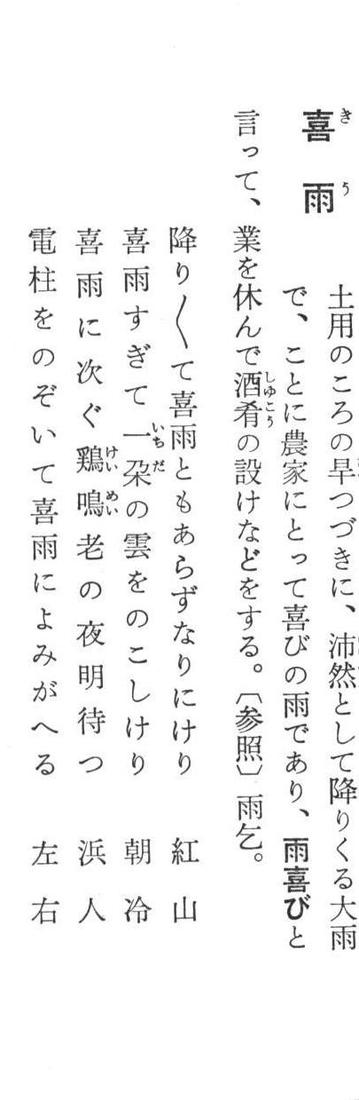 喜雨
土用のころの旱つづきに、沛然として降りくる大雨
で、ことに農家にとって喜びの雨であり、雨喜びと
言って、業を休んで酒肴の設けなどをする。〔参照〕雨乞。
降り〱て喜雨ともあらずなりにけり 紅山
喜雨すぎて一朶の雲をのこしけり 朝冷
喜雨に次ぐ鶏鳴老の夜明待つ 浜人
電柱をのぞいて喜雨によみがへる 左右